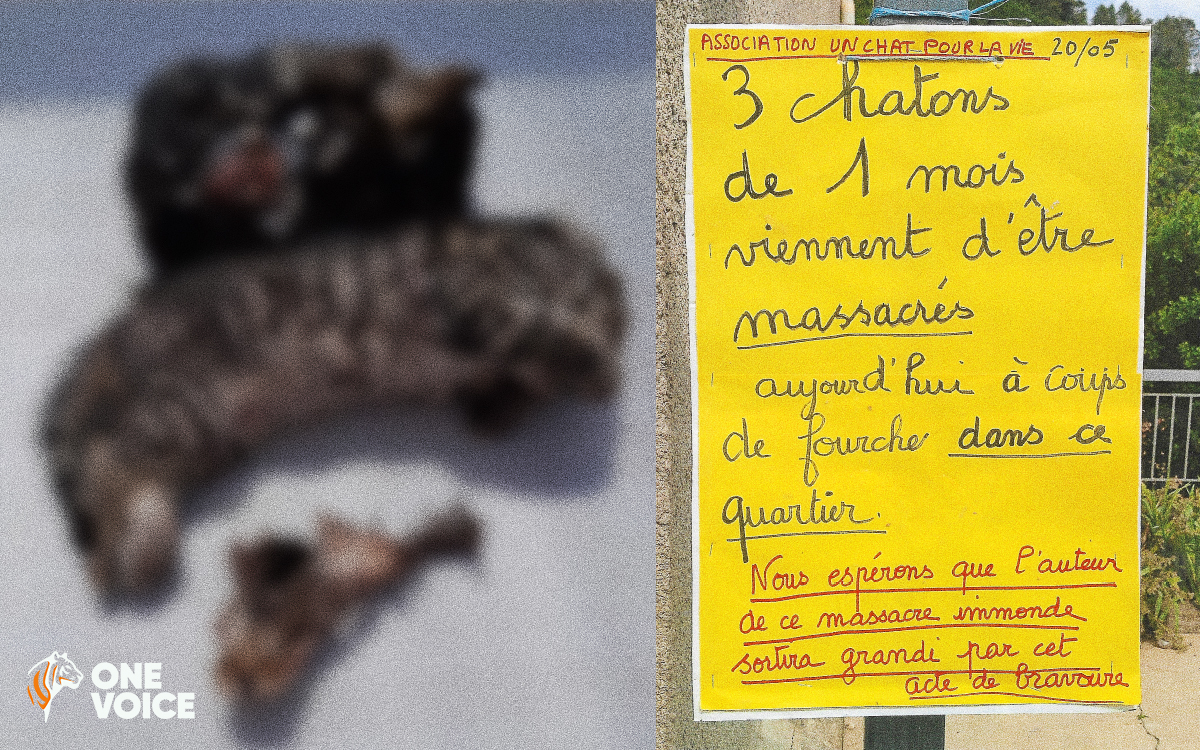 ASSOCIATION UN CHAT POUR LA VIE 20/05
3 chatons
de 1 mois
viennent d'être
massacrés
aujourd'hui à coups
de fourche dans ce
quartier.
Nous espérons que l'auteur
de ce massacre immonde
sortira grandi par cet
acte de bravoure
ONE
VOICE